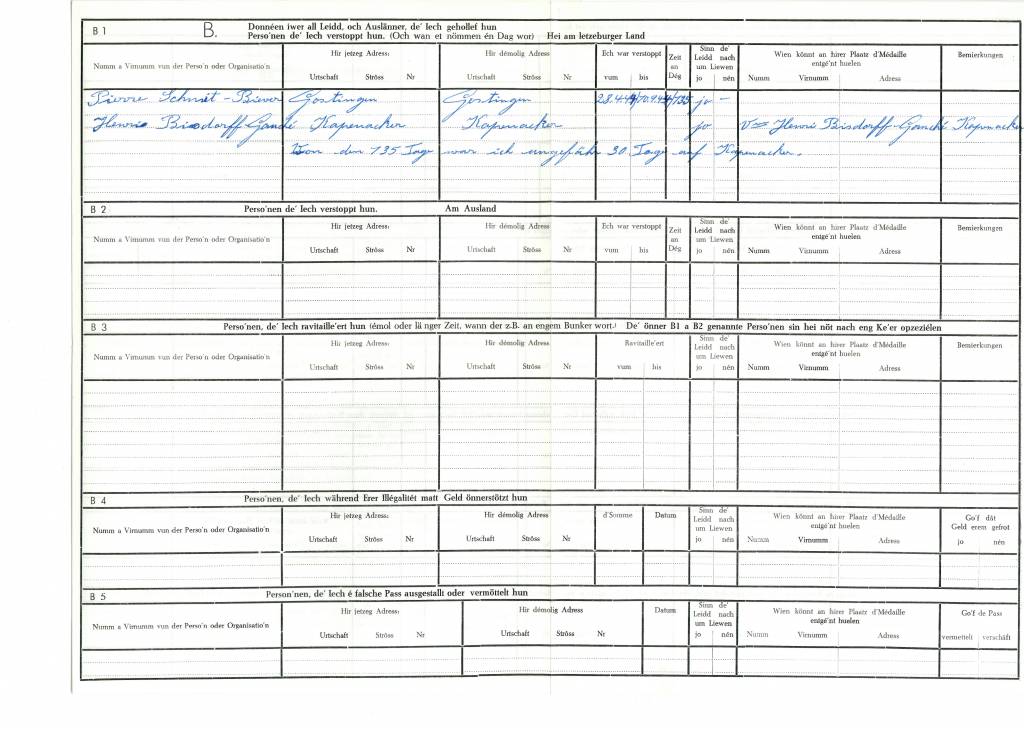 B 1 B. Donnéen iwer all Leidd, och Auslänner, de' Iech gehollef hun
Perso'nen de' Iech verstoppt hun. (Och wan et nömmen én Dag wor) Hei am letzeburger Land
Numm a Virnumm vun der Perso'n oder Organisatio'n
Hir jetzeg Adress: Hir démolig Adress Ech war verstoppt Zeit an Dég Sinn de' Leidd nach um Liewen Wien könnt an hirer Plaatz d'Médaille entgé'nt huelen Bemierkungen
Urtschaft Ströss Nr Urtschaft Ströss Nr vum bis jo nén Numm Virnumm Adress
Pierre Schmit-Biever Gostingen Gostingen 28.4.44 10.9.44 135 jo -
Henri Bisdorff-Ganché Kapenacker Kapenacker jo Henri Bisdorff-Ganché Kapenacker
Von den 135 Tage war ich ungefähr 30 Tage auf Kapenacker.
B 2 Perso'nen de' Iech verstoppt hun. Am Ausland
Numm a Virnumm vun der Perso'n oder Organisatio'n
Hir jetzeg Adress: Hir démolig Adress Ech war verstoppt Zeit an Dég Sinn de' Leidd nach um Liewen Wien könnt an hirer Plaatz d'Médaille entgé'nt huelen Bemierkungen
Urtschaft Ströss Nr Urtschaft Ströss Nr vum bis jo nén Numm Virnumm Adress
B 3 Perso'nen, de' Iech ravitaille'ert hun (émol oder lä nger Zeit, wann der z.B. an engem Bunker wort.) De' önner B1 a B2 genannte Perso'nen sin hei nöt nach eng Ke'er opzeziélen
Numm a Virnumm vun der Perso'n oder Organisatio'n
Hir jetzeg Adress: Hir démolig Adress Ravitaille'ert Sinn de' Leidd nach um Liewen Wien könnt an hirer Plaatz d'Médaille entgé'nt huelen Bemierkungen
Urtschaft Ströss Nr Urtschaft Ströss Nr vum bis jo nén Numm Virnumm Adress
B 4 Perso'nen, de' Iech während Erer Illégalitét matt Geld önnerstötzt hun
Numm a Virnumm vun der Perso'n oder Organisatio'n
Hir jetzeg Adress: Hir démolig Adress d'Somme Datum Sinn de' Leidd nach um Liewen Wien könnt an hirer Plaatz d'Médaille entgé'nt huelen Go'f dât Geld erem gefrot
Urtschaft Ströss Nr Urtschaft Ströss Nr jo nén Numm Virnumm Adress jo nén
B 5 Person'nen, de' Iech é falsche Pass ausgestallt oder vermöttelt hun
Numm a Virnumm vun der Perso'n oder Organisatio'n
Hir jetzeg Adress: Hir démolig Adress Datum Sinn de' Leidd nach um Liewen Wien könnt an hirer Plaatz d'Médaille entgé'nt huelen Go'f de Pass
Urtschaft Ströss Nr Urtschaft Ströss Nr jo nén Numm Virnumm Adress vermettelt verschäft